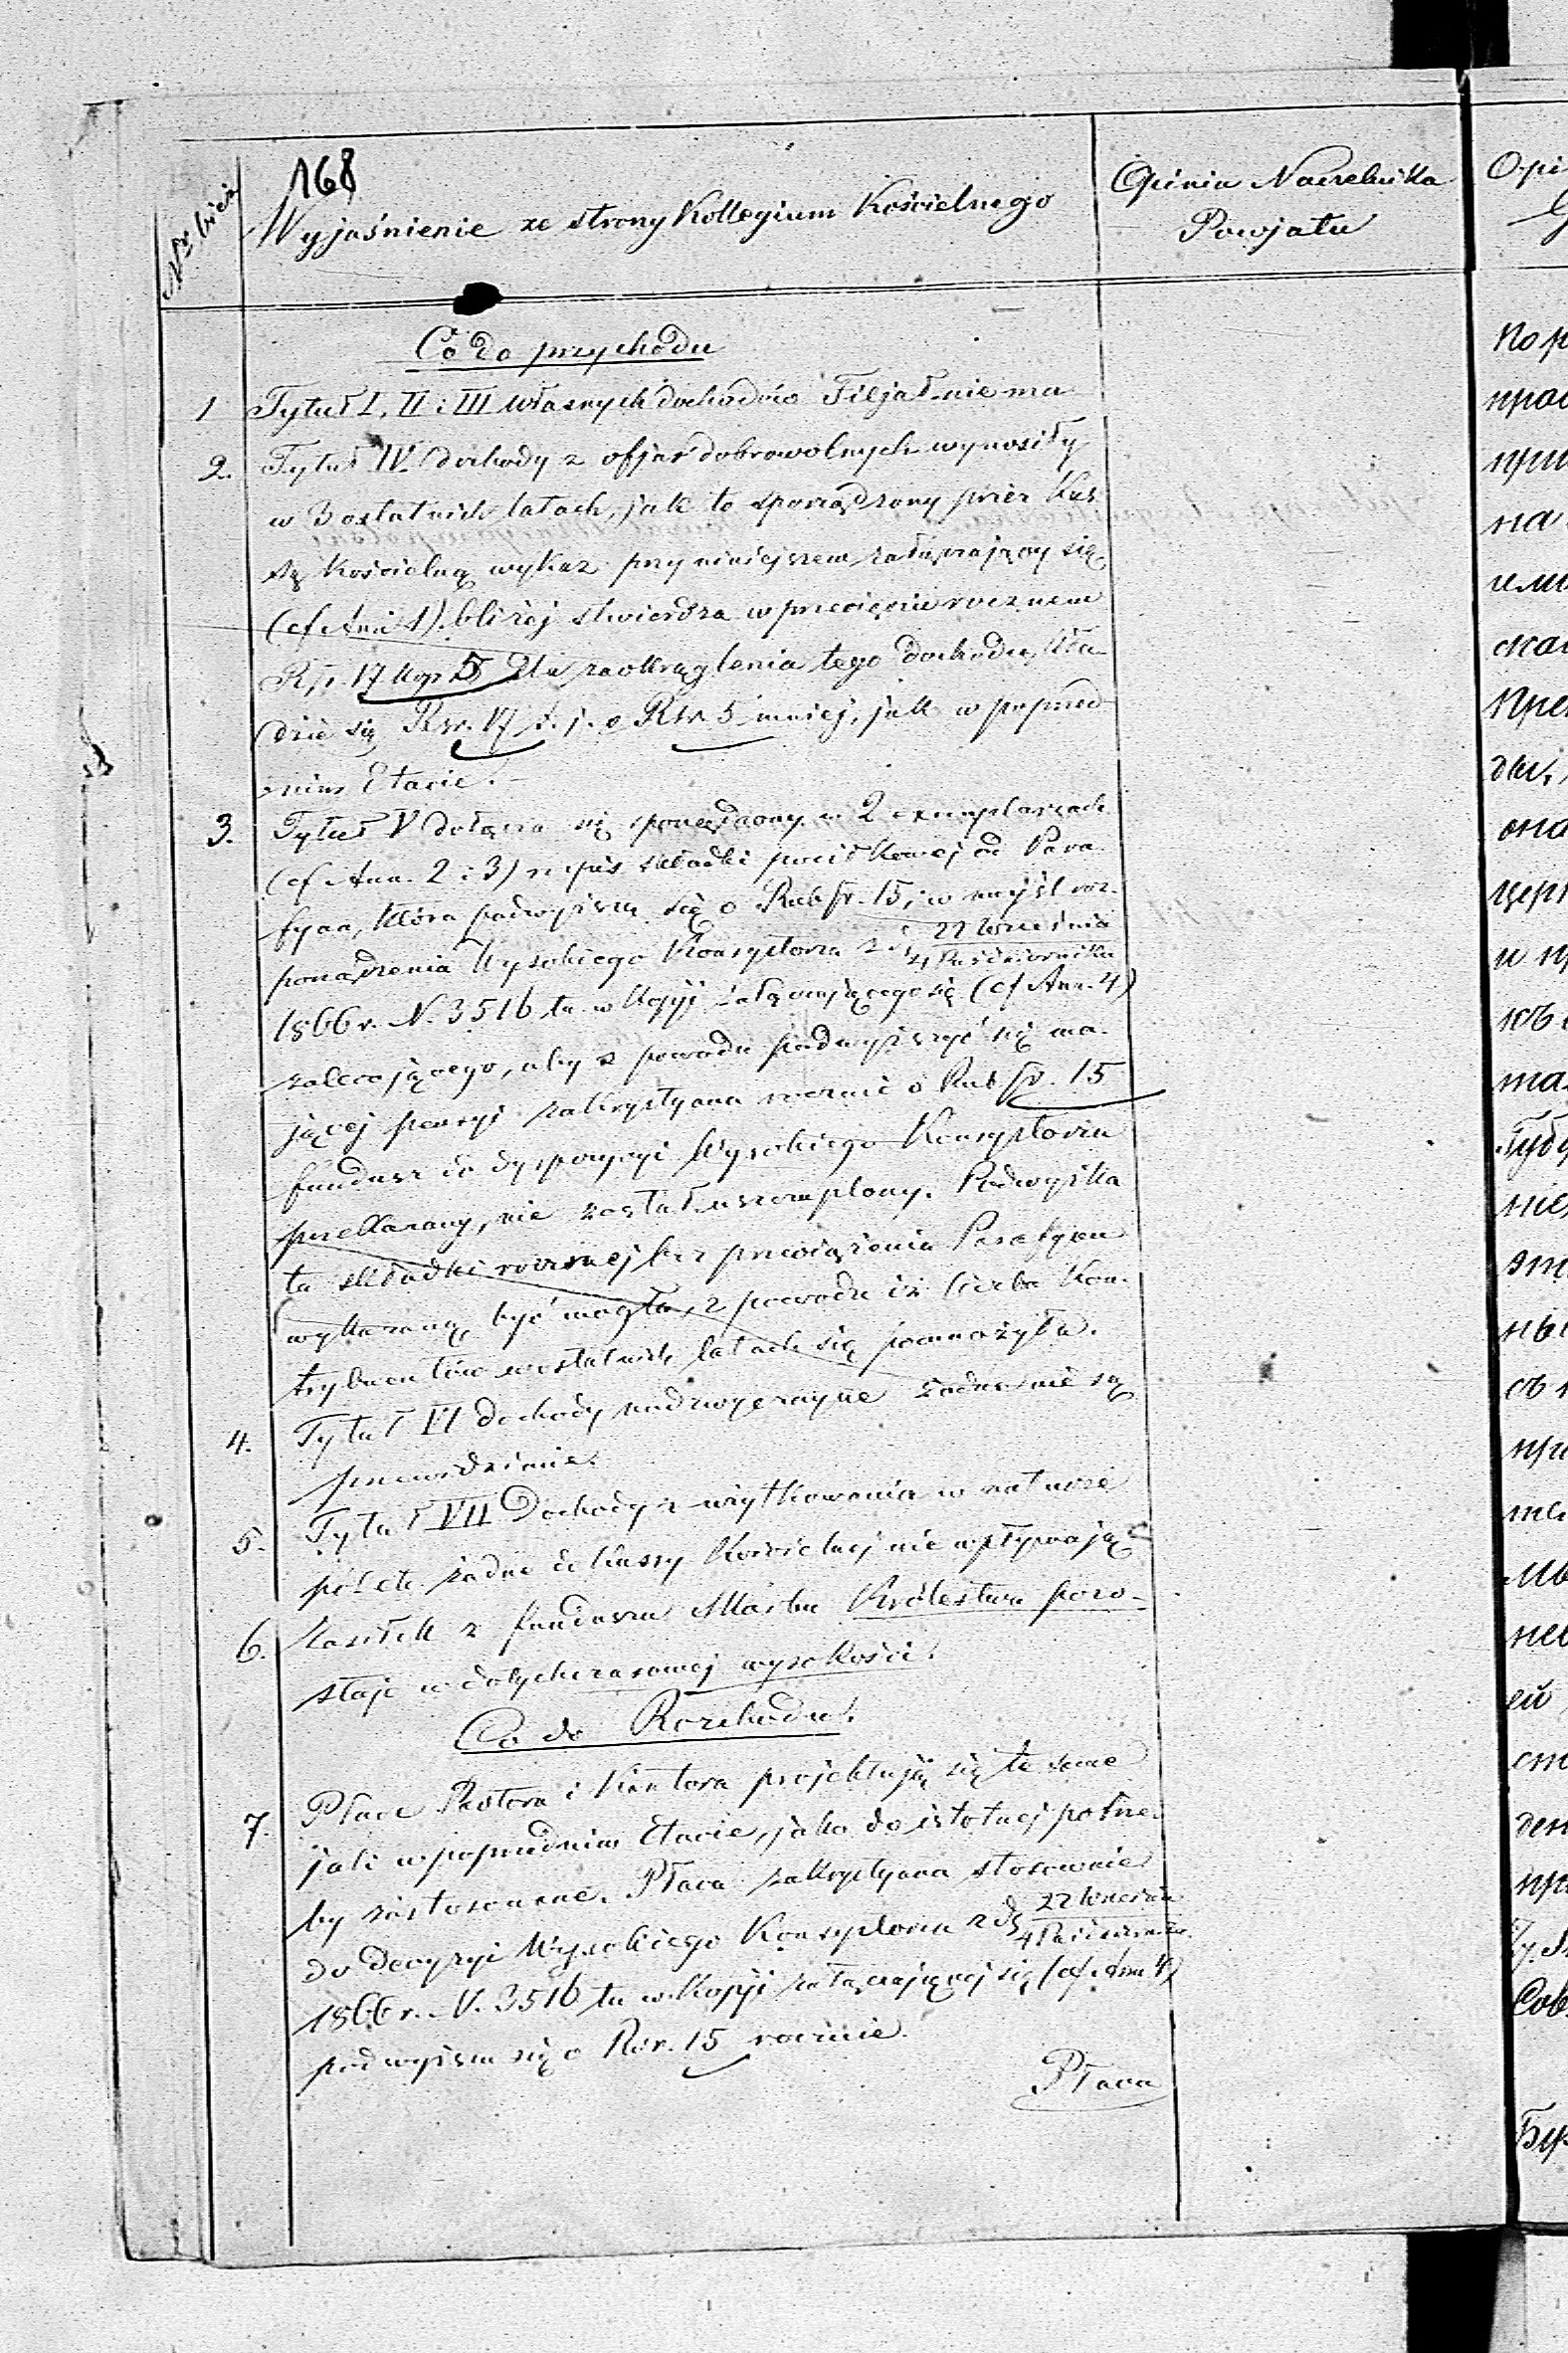 168
Nr bież
Wyjaśnienie ze strony Kollegium Kościelnego
Opinia Naczelnika
Powjatu
Co do przychodu
1 Tytuł I, II i III własnych dochodów Filjał nie ma
2. Tytuł IV dochody z ofjar dobrowolnych wynosiły
w 3 ostatnich latach, jak to sporządzony przez Kas-
sę Kościelną wykaz przy niniejszem załączający się
(cf Ann 1). bliżej stwierdza w przecięciu rocznem
Rsr. 17 kop 5 Dla zaokrąglenia tego dochodu, kła-
dzie się Rsr. 17 t. j. o Rsr. 5 mniej, jak w poprzed-
nim Etacie.
3. Tytuł V dołącza się sporządzony w 2 exemplarzach
(cf Ann. 2 i 3) rozpis składki posiłkowej od Para-
fyan, która podwyższa się o Rub sr. 15, w myśl roz-
porządzenia Wysokiego Konsystorza z d. 22 Września
4 Października
1866 r. N. 3516 tu w Kopji załączającego się (cf Ann. 4)
zalecającego, aby z powodu podwyższyć się ma-
jącej pensyi zakrystyana rocznie o Rub sr. 15
fundusz do dyspozycyi Wysokiego Konsystorza
przekazany, nie został uszczuplony. Podwyżka
ta składki rocznej bez przeciążenia Parafyan
wykazaną być mogła, z powodu iż liczba Kon-
trybuentów w ostatnich latach się pomnożyła.
4. Tytuł VI dochody nadzwyczajne żadne nie są
przewidziane.
5. Tytuł VII Dochody z użytkowania w naturze
pól etc. żadne do Kassy Kościelnej nie wpływają
6. Zasiłek z funduszu Skarbu Królestwa pozo-
staje w dotychczasowej wysokości.
Co do Rozchodu.
7. Płace Pastora i Kantora projektują się te same
jak w poprzednim Etacie, jako do istotnej potrze-
by zastosowane. Płaca zakrystyana stosownie
do decyzyi Wysokiego Konsystorza z d. 22 Września
4 Października
1866 r. N. 3516 tu w Kopji załączającej się (cf. Ann 4)
podwyższa się o Rsr. 15 rocznie.
Płaca